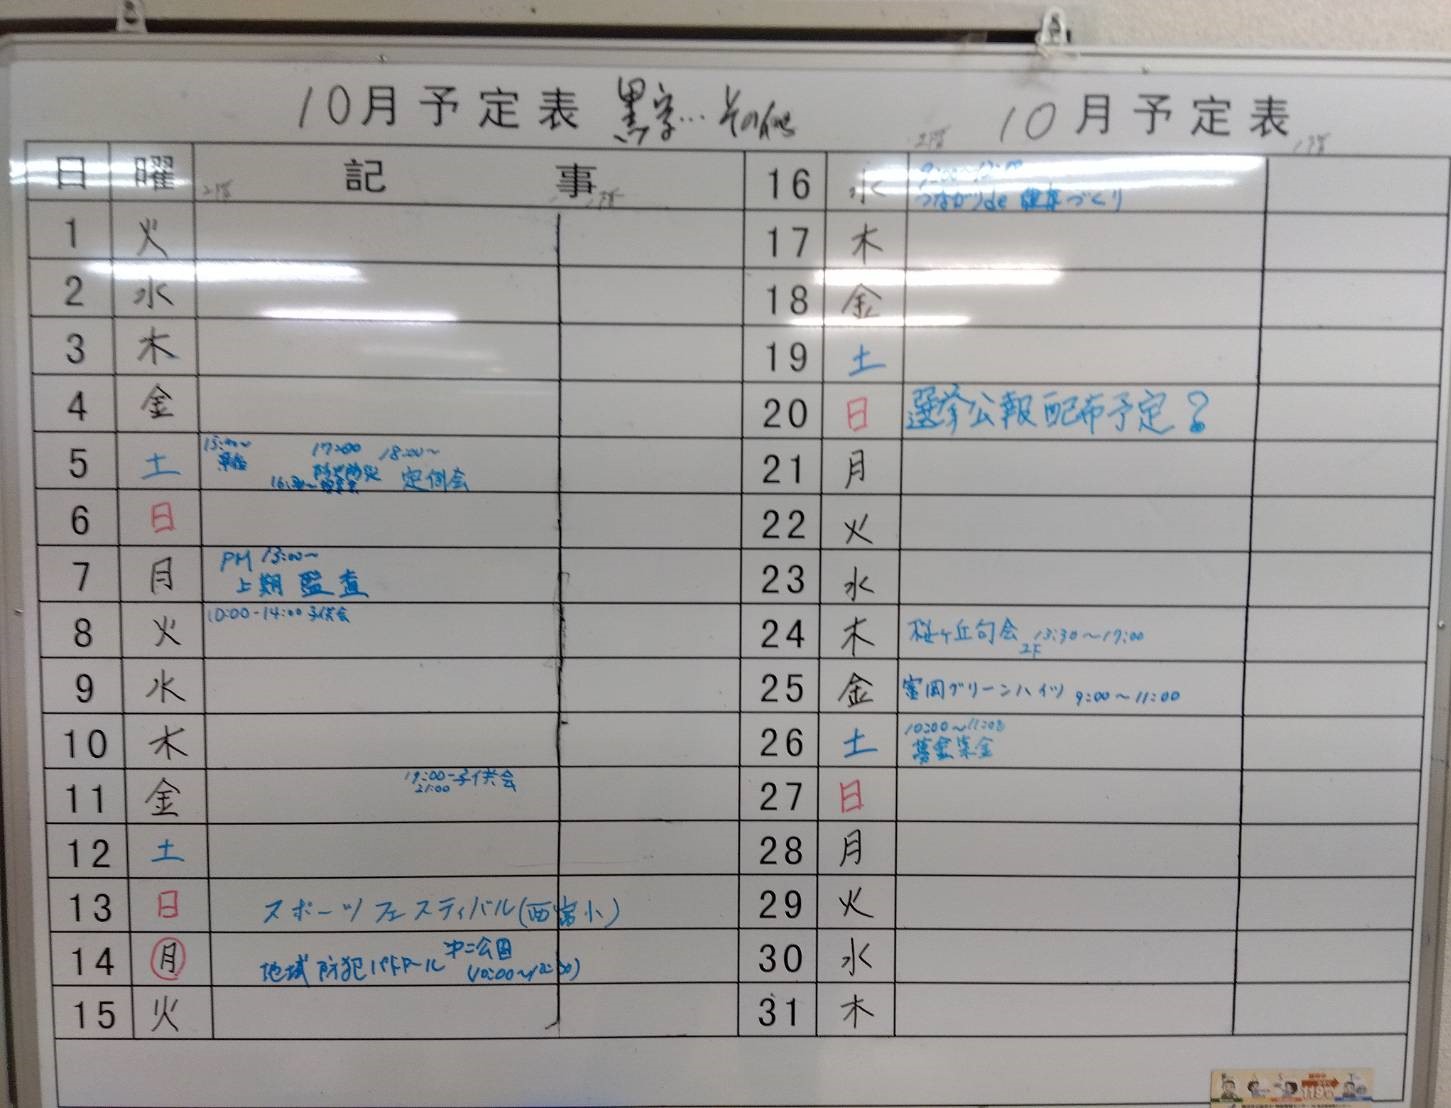 10月予定表 黒字…その他 10月予定表
2階 1階
日 曜 記事
2階 1階
1 火
2 水
3 木
4 金
5 土 17:00 18:00～
防犯防災 定例会
16:30～
6 日
7 月 PM 13:00～
上期監査
8 火 10:00-14:00 子供会
9 水
10 木
11 金 19:00-子供会
21:00
12 土
13 日 スポーツフェスティバル(西富小)
14 月 地域防犯パトロール 中二公園
(10:00～12:00)
15 火
16 水
つながりde健康づくり
17 木
18 金
19 土
20 日 選挙公報配布予定?
21 月
22 火
23 水
24 木 桜ヶ丘句会 13:30～17:00
2F
25 金 富岡グリーンハイツ 9:00～11:00
26 土 10:00～11:00
募金
27 日
28 月
29 火
30 水
31 木
119